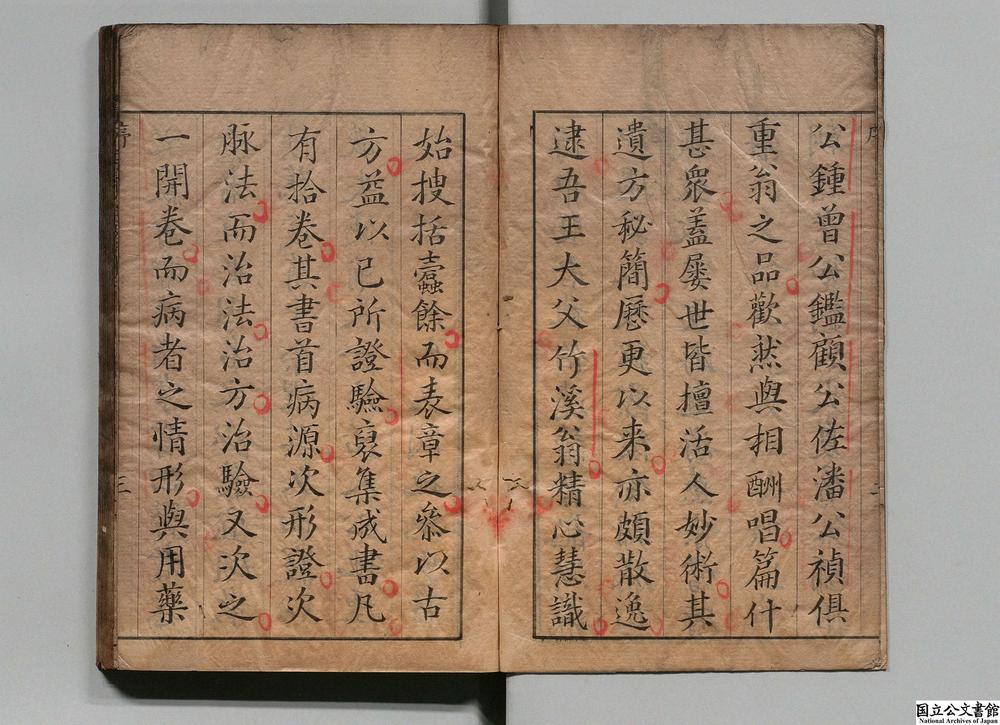 公鍾曾公鑑顧公佐潘公禎俱
重翁之品歡然與相酬唱篇什
甚眾蓋屡世皆擅活人妙術其
遺方秘簡歷更以来亦頗散逸
逮吾王大父竹溪翁精心慧識
始搜括蠹餘而表章之叅以古
方益以已所證驗裒集成書凡
有拾卷其書首病源次形證次
脉法而治法治方治驗又次之
一開卷而病者之情形與用藥
序
三
国立公文書館
National Archives of Japan